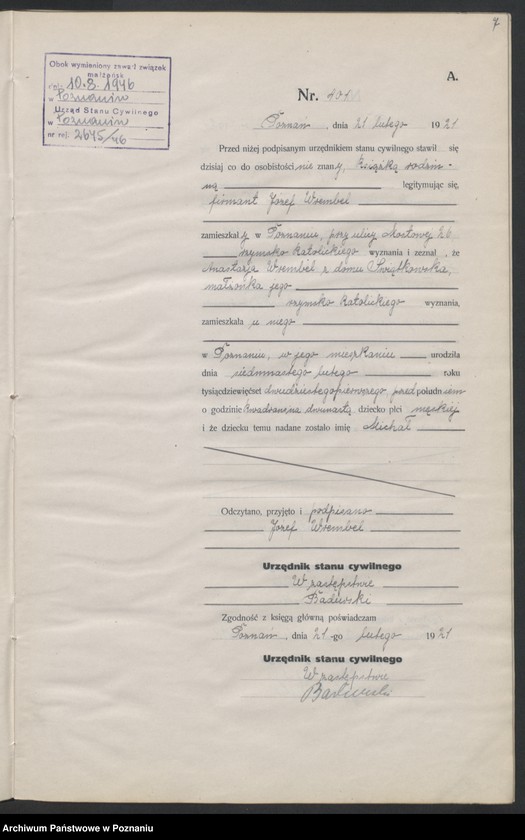 7
Obok wymieniony zawarł związek
małżeński
dnia 10.8.1946
w Poznaniu
Urząd Stanu Cywilnego
w Poznaniu
nr rej: 2645/46
A.
Nr.
Poznań, dnia 21 lutego 1921
Przed niżej podpisanym urzędnikiem stanu cywilnego stawił się
dzisiaj co do osobistości, nie znany, książką rodzin-
ną legitymując się,
Józef Wrembel
zamieszkały w Poznaniu, przy ulicy Mostowej 26
rzymsko katolickiego wyznania i zeznał, że
Anastazja Wrembel z domu Świątkowska,
małżonka jego
rzymsko katolickiego wyznania,
zamieszkała u niego
w Poznaniu, w jego mieszkaniu urodziła
dnia siedmnastego lutego roku
tysiącdziewięćset dwudziestegopierwszego, przed południem
o godzinie kwadrans na dwunastą dziecko płci męskiej
i że dziecku temu nadane zostało imię Michał
Odczytano, przyjęto i podpisano
Józef Wrembel
Urzędnik stanu cywilnego
W zastępstwie
Zgodność z księgą główną poświadczam
Poznań, dnia 21-go lutego 1921
Urzędnik stanu cywilnego
W zastępstwie
Archiwum Państwowe w Poznaniu